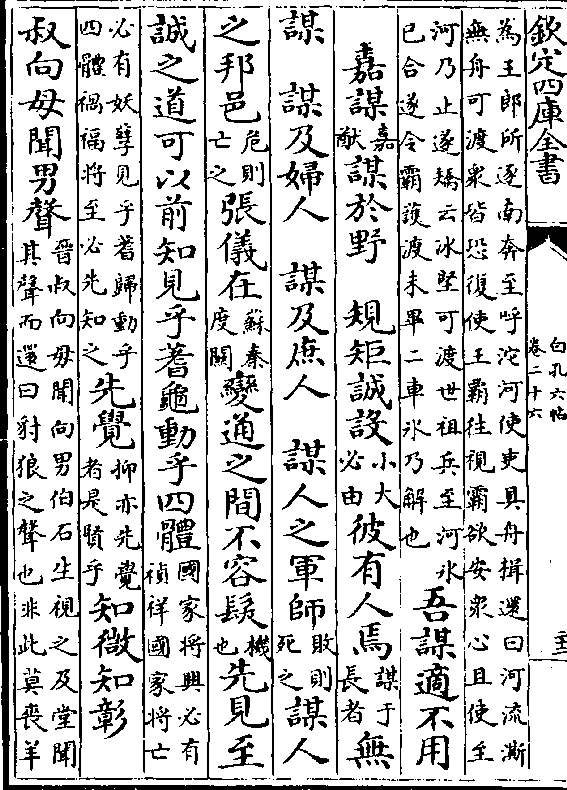 欽定四庫全書
白孔六帖
卷二十六
為王郎所逐南奔至呼沱河使吏具舟揖還曰河流澌
無舟可渡衆皆恐復使王霸往視霸欲安衆心且使至
河乃止遂矯云冰堅可渡世祖兵至河氷
已合遂令霸護渡未畢二車氷乃解也
吾謀適不用
嘉謀嘉猷謀於野 規矩誠設小大必由彼有人焉謀于長者無
謀 謀及婦人 謀及庶人 謀人之軍師敗則死之謀人
之邦邑危則亡之張儀在蘇秦度關變通之間不容髮機也先見至
誠之道可以前知見乎蓍龜動乎四體國家將興必有禎祥國家將亡
必有妖孽見乎蓍歸動乎四體禍福將至必先知之先覺抑亦先覺者是賢乎知微知彰
叔向母聞男聲晉叔向母聞向男伯石生視之及堂聞其聲而還曰豺狼之聲也非此莫喪羊